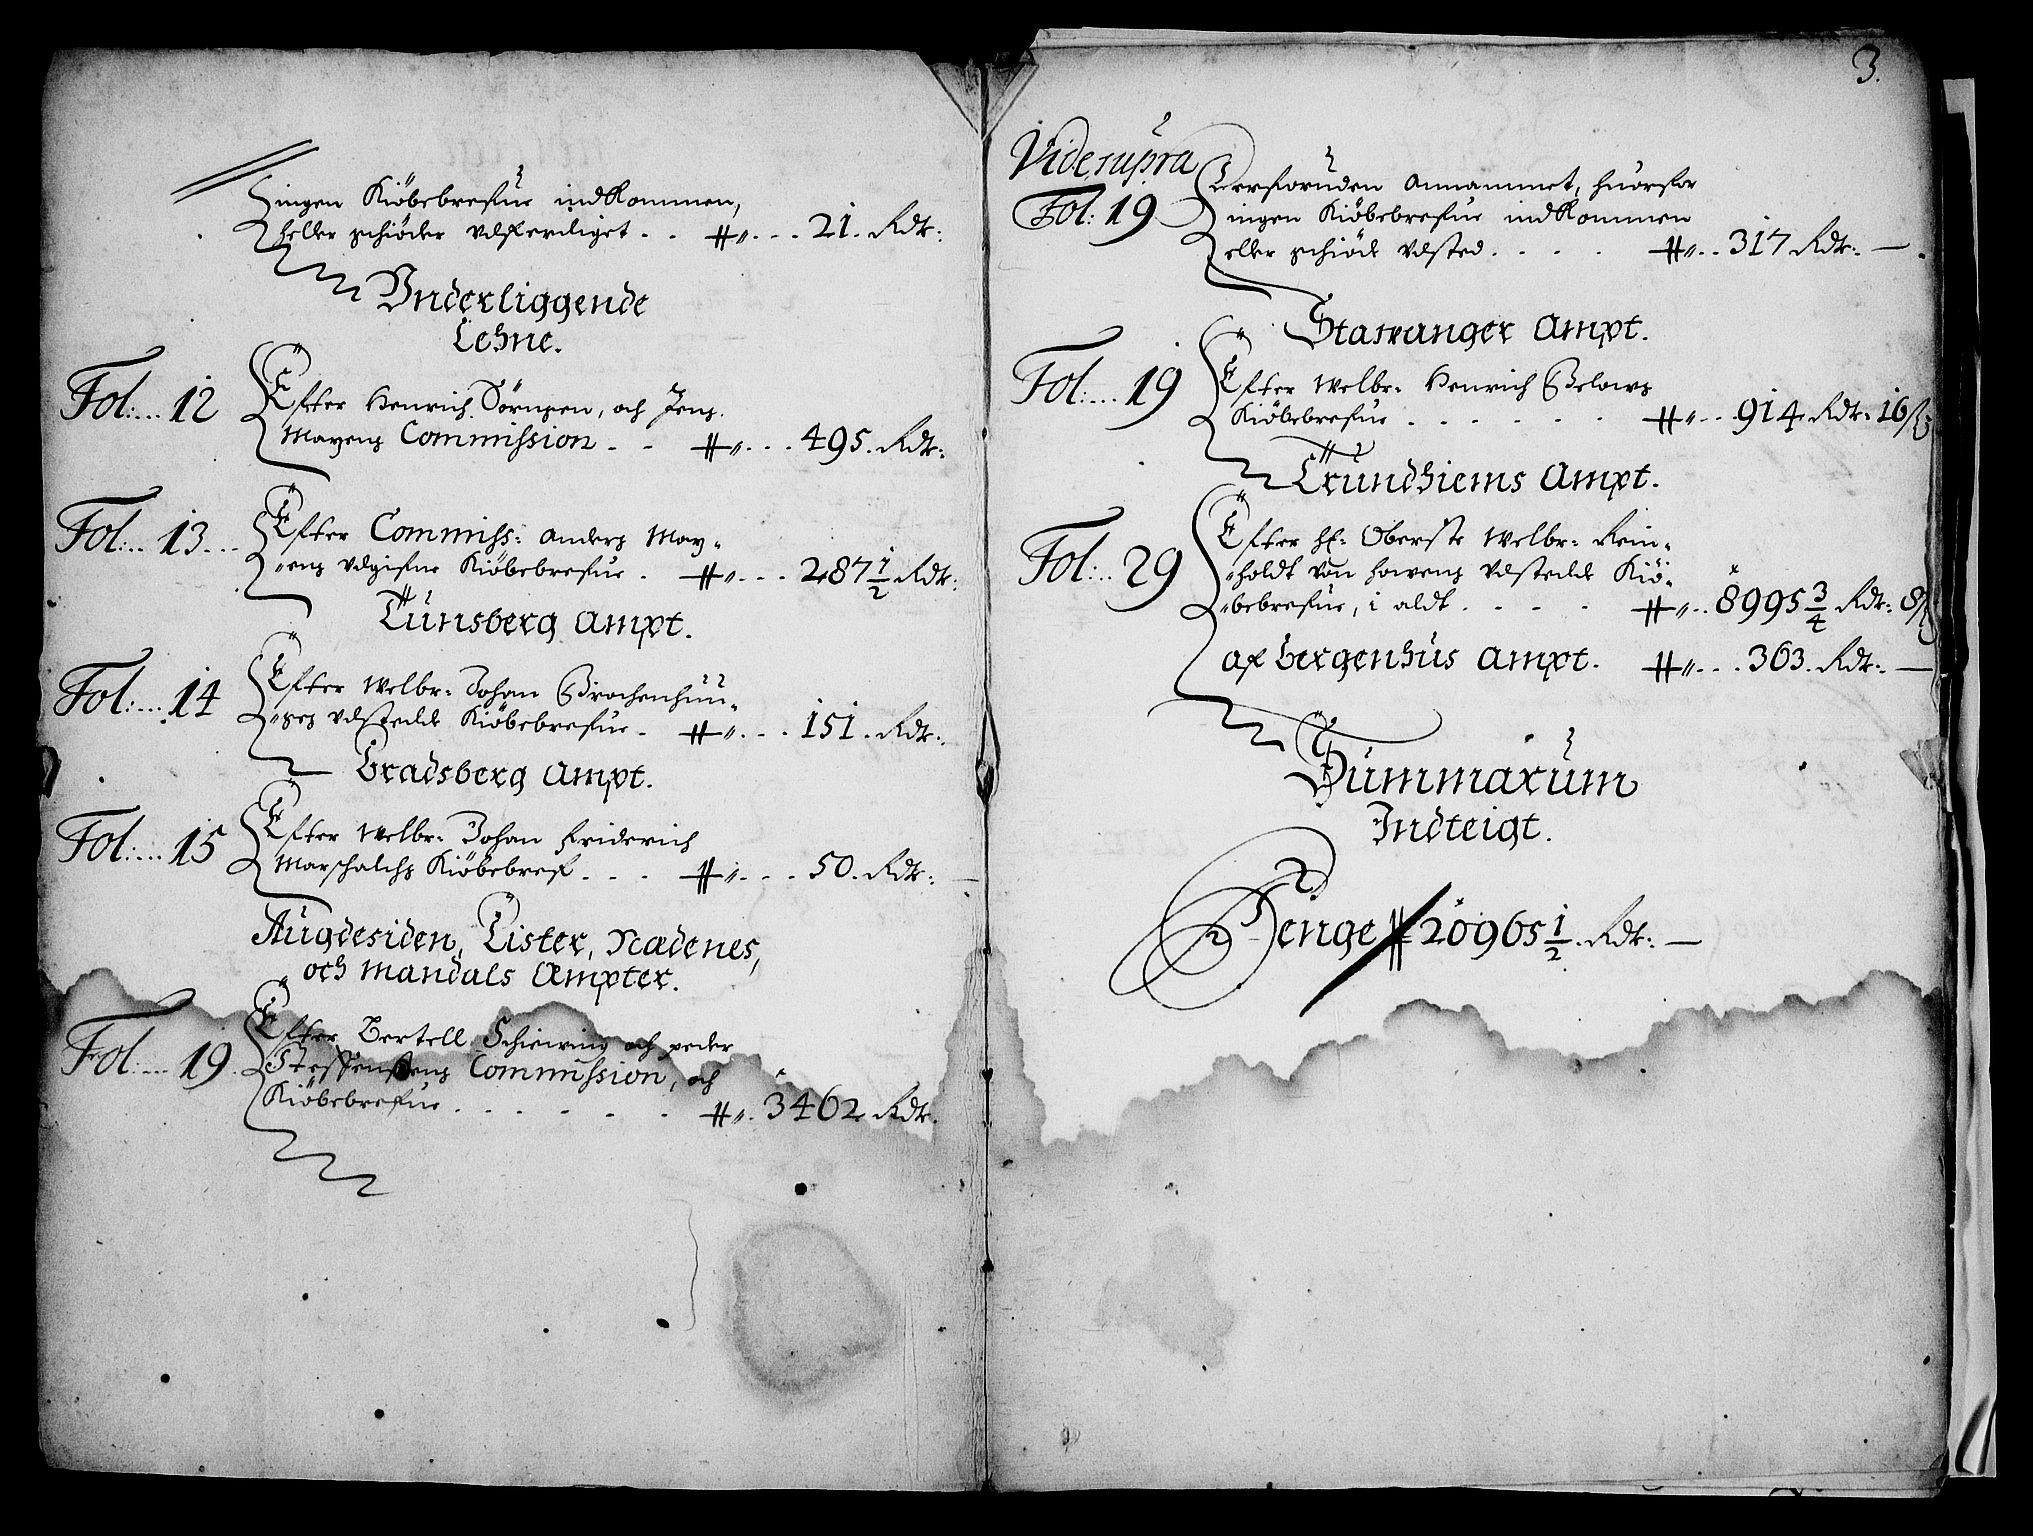 ingen Kiöbebrefue indkommen,
heller schiöder vdferdiget . . # „ . . . 21. Rdr:
Vnderliggende
Lehne.
Fol: ... 12 Efter Henrich Sörnsen, och Jens
Mayens Commission . . # „ . . . 495. Rdr:
Fol: ... 13 ... Efter Commihs: Anders May-
ens vdgifne Kiöbebrefue . # „ . . . 287 1/2 Rdr:
Tünsberg Ampt.
Fol: ... 14 Efter Welbr: Johan Brochenhuu-
ses vdstedde Kiöbebrefue . # „ . . . 151. Rdr:
Bradsberg Ampt.
Fol: ... 15 Efter Welbr: Johan Friderich
Marschalchs Kiöbebref . . . # „ . . . 50. Rdr: —
Augdesiden, Lister, Nædenes,
och Mandals Ampter.
Fol: ... 19. Efter Bertell Schiering och peder
Steffensens Commission, och
Kiöbebrefue . . . . . . # „ . 3462 Rdr.
3.
Vide supra
Fol: 19 Derforuden Annammet, huorfor
ingen Kiöbebrefue indkommen
eller schiöde vdsted . . . . # „ . . 317 Rdr: —
Stawanger Ampt.
Fol: ... 19 Efter Welbr: Henrich Belows
Kiöbebrefue . . . . . . # „ . . 914 Rdr: 16 ß
Trundhiems Ampt.
Fol: .. 29 Efter H: Oberste Welbr: Rein-
holdt von Howens vdstedde Kiö-
bebrefue, i aldt . . . . # „ . . 8995 3/4 Rdr: 8 ß
Af Bergenhus Ampt. # „ . . . 363. Rdr: —
Summarum
Indteigt.
Penge # 20965 1/2 . Rdr: —